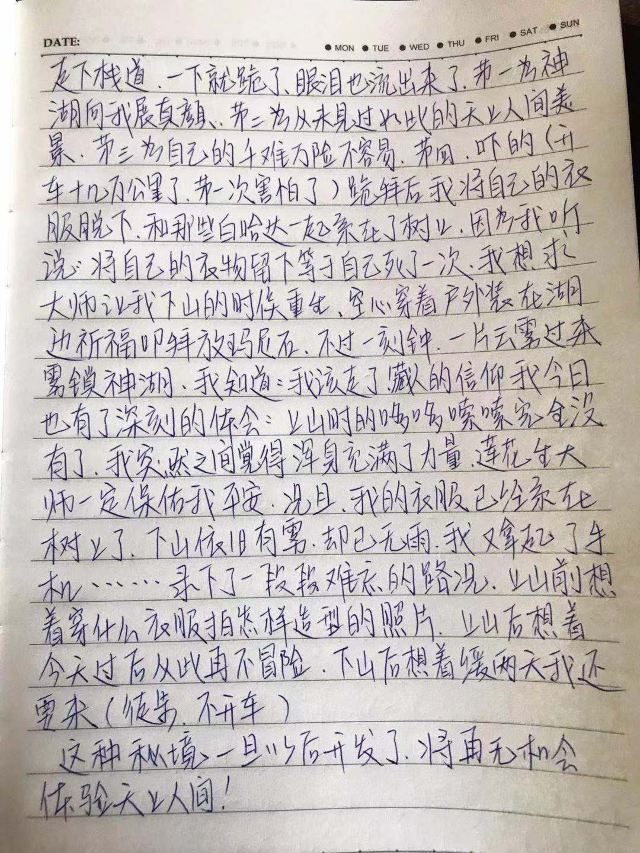 DATE:
MON TUE WED THU FRI SAT SUN
走下栈道、一下就跪了、眼泪也流出来了、第一为神
湖向我展真颜、第二为从未见过如此的天上人间美
景、第三为自己的千难万险不容易、第四、吓的（开
车十几万公里了、第一次害怕了）跪拜后我将自己的衣
服脱下、和那些白哈达一起系在了树上、因为我听
说：将自己的衣物留下等于自己死了一次、我想求
大师让我下山的时候重生、空心穿着户外装在湖
边祈福叩拜放玛尼石、不过一刻钟、一片云雾过来
雾锁神湖、我知道：我该走了藏人的信仰我今日
也有了深刻的体会：上山时的哆哆嗦嗦完全没
有了、我突然之间觉得浑身充满了力量、莲花生大
师一定保佑我平安、况且、我的衣服已经系在
树上了、下山依旧有雾、却已无雨、我又拿起了手
机……录下了一段段难忘的路况、上山前想
着穿什么衣服拍怎样造型的照片、上山后想着
今天过后从此再不冒险、下山后想着缓两天我还
要来（徒步、不开车）
这种秘境一旦以后开发了、将再无机会
体验天上人间！